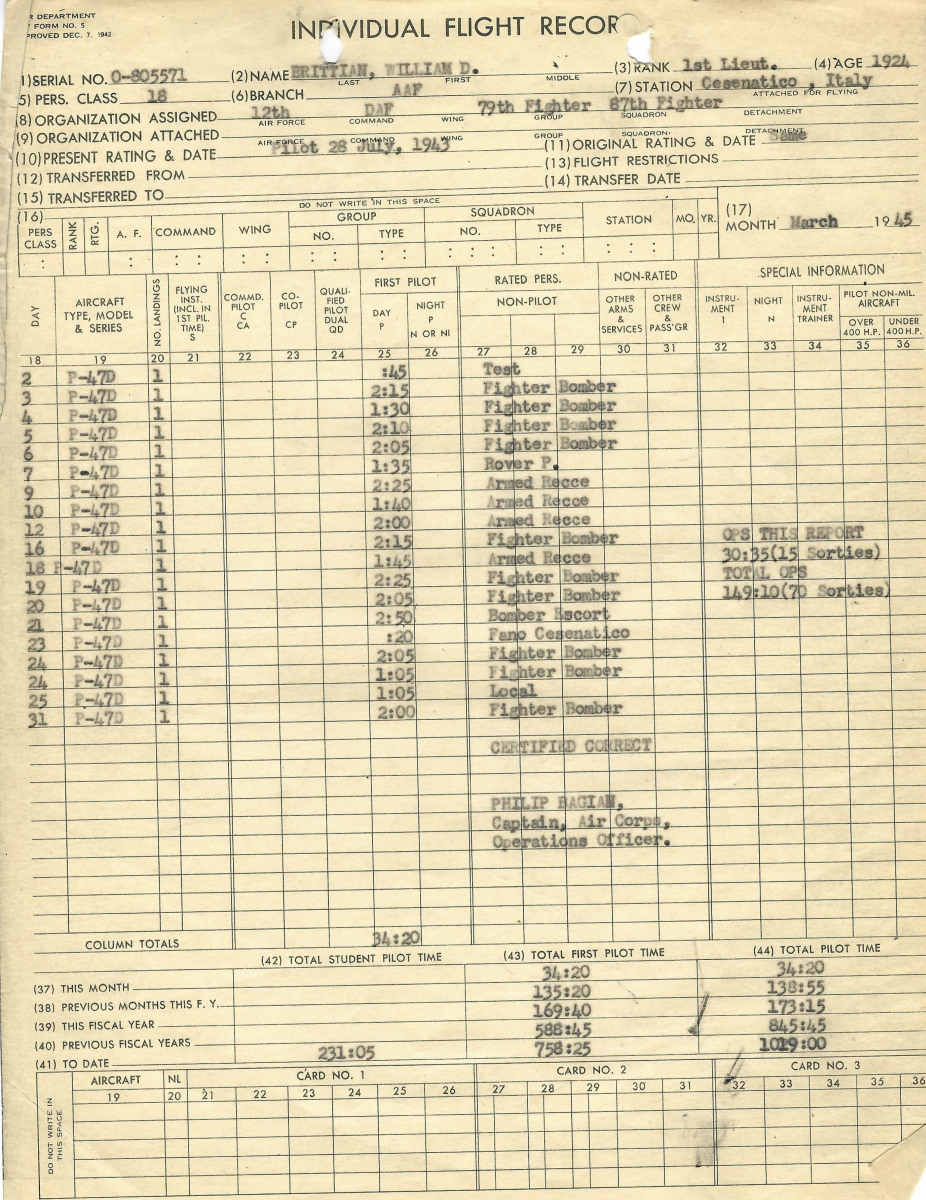 R DEPARTMENT
FORM NO. 5
ROVED DEC. 7, 1942
INDIVIDUAL FLIGHT RECOR
1) SERIAL NO. O-805571 (2) NAME BRITTIAN, WILLIAM D. (3) RANK 1st Lieut. (4) AGE 1924
LAST FIRST MIDDLE
5) PERS. CLASS 18 (6) BRANCH AAF (7) STATION Cesenatico, Italy
ATTACHED FOR FLYING
(8) ORGANIZATION ASSIGNED 12th DAF 79th Fighter 87th Fighter
AIR FORCE COMMAND WING GROUP SQUADRON DETACHMENT
(9) ORGANIZATION ATTACHED
AIR FORCE COMMAND WING GROUP SQUADRON DETACHMENT
(10) PRESENT RATING & DATE Pilot 28 July, 1943 (11) ORIGINAL RATING & DATE Same
(12) TRANSFERRED FROM (13) FLIGHT RESTRICTIONS
(15) TRANSFERRED TO (14) TRANSFER DATE
DO NOT WRITE IN THIS SPACE
(16) PERS CLASS RANK RTG. A. F. COMMAND WING GROUP NO. TYPE SQUADRON NO. TYPE STATION MO. YR. (17) MONTH March 1945
DAY AIRCRAFT TYPE, MODEL & SERIES NO. LANDINGS FLYING INST. (INCL. IN 1ST PIL. TIME) S COMMD. PILOT C CA CO-PILOT CP QUALI-FIED PILOT DUAL QD FIRST PILOT DAY P NIGHT P N OR NI RATED PERS. NON-PILOT NON-RATED OTHER ARMS & SERVICES OTHER CREW & PASS'GR SPECIAL INFORMATION INSTRU-MENT I NIGHT N INSTRU-MENT TRAINER PILOT NON-MIL. AIRCRAFT OVER 400 H.P. UNDER 400 H.P.
18 19 20 21 22 23 24 25 26 27 28 29 30 31 32 33 34 35 36
2 P-47D 1 :45 Test
3 P-47D 1 2:15 Fighter Bomber
4 P-47D 1 1:30 Fighter Bomber
5 P-47D 1 2:10 Fighter Bomber
6 P-47D 1 2:05 Fighter Bomber
7 P-47D 1 1:35 Rover P.
9 P-47D 1 2:25 Armed Recce
10 P-47D 1 1:40 Armed Recce
12 P-47D 1 2:00 Armed Recce
16 P-47D 1 2:15 Fighter Bomber OPS THIS REPORT
18 P-47D 1 1:45 Armed Recce 30:35(15 Sorties)
19 P-47D 1 2:25 Fighter Bomber TOTAL OPS
20 P-47D 1 2:05 Fighter Bomber 149:10(70 Sorties)
21 P-47D 1 2:50 Bomber Escort
23 P-47D 1 :20 Fano Cesenatico
24 P-47D 1 2:05 Fighter Bomber
24 P-47D 1 1:05 Fighter Bomber
25 P-47D 1 1:05 Local
31 P-47D 1 2:00 Fighter Bomber
CERTIFIED CORRECT
PHILIP BAGIAN,
Captain, Air Corps,
Operations Officer.
COLUMN TOTALS 34:20
(42) TOTAL STUDENT PILOT TIME (43) TOTAL FIRST PILOT TIME (44) TOTAL PILOT TIME
(37) THIS MONTH 34:20 34:20
(38) PREVIOUS MONTHS THIS F. Y. 135:20 138:55
(39) THIS FISCAL YEAR 169:40 173:15
(40) PREVIOUS FISCAL YEARS 588:45 845:45
(41) TO DATE 231:05 758:25 1019:00
DO NOT WRITE IN THIS SPACE
AIRCRAFT NL CARD NO. 1 CARD NO. 2 CARD NO. 3
19 20 21 22 23 24 25 26 27 28 29 30 31 32 33 34 35 36